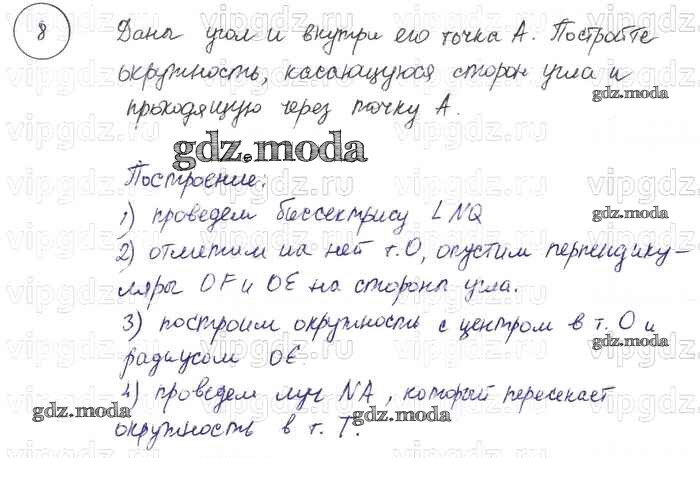 8 Даны угол и внутри его точка А. Постройте
окружность, касающуюся сторон угла и
gdz.moda
проходящую через точку А.
gdz.moda
Построение:
1) проведем биссектрису ∠NQ
gdz.moda
2) отметим на ней т. О, опустим перпендику-
ляры OF и OE на стороны угла.
3) построим окружность с центром в т. О и
gdz.moda
радиусом OE.
4) проведем луч NA, который пересекает
gdz.moda gdz.moda
окружность в т. T.
vipgdz.ru